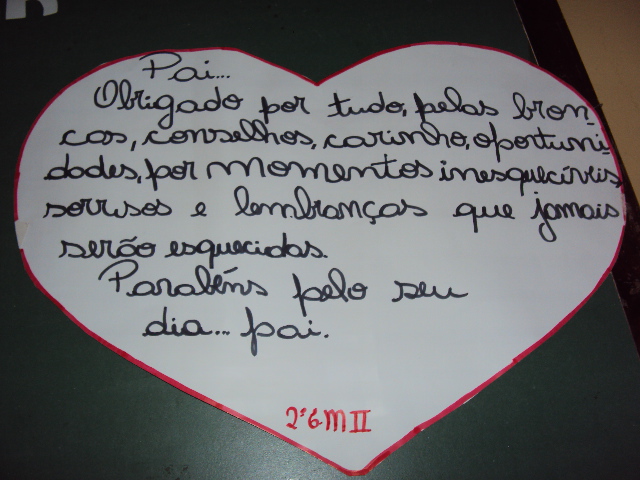 Pai...
Obrigado por tudo, pelas bron-
cas, conselhos, carinho, oportuni-
dades, por momentos inesquecíveis,
sorrisos e lembranças que jamais
serão esquecidas.
Parabéns pelo seu
dia... pai.
2º G M II